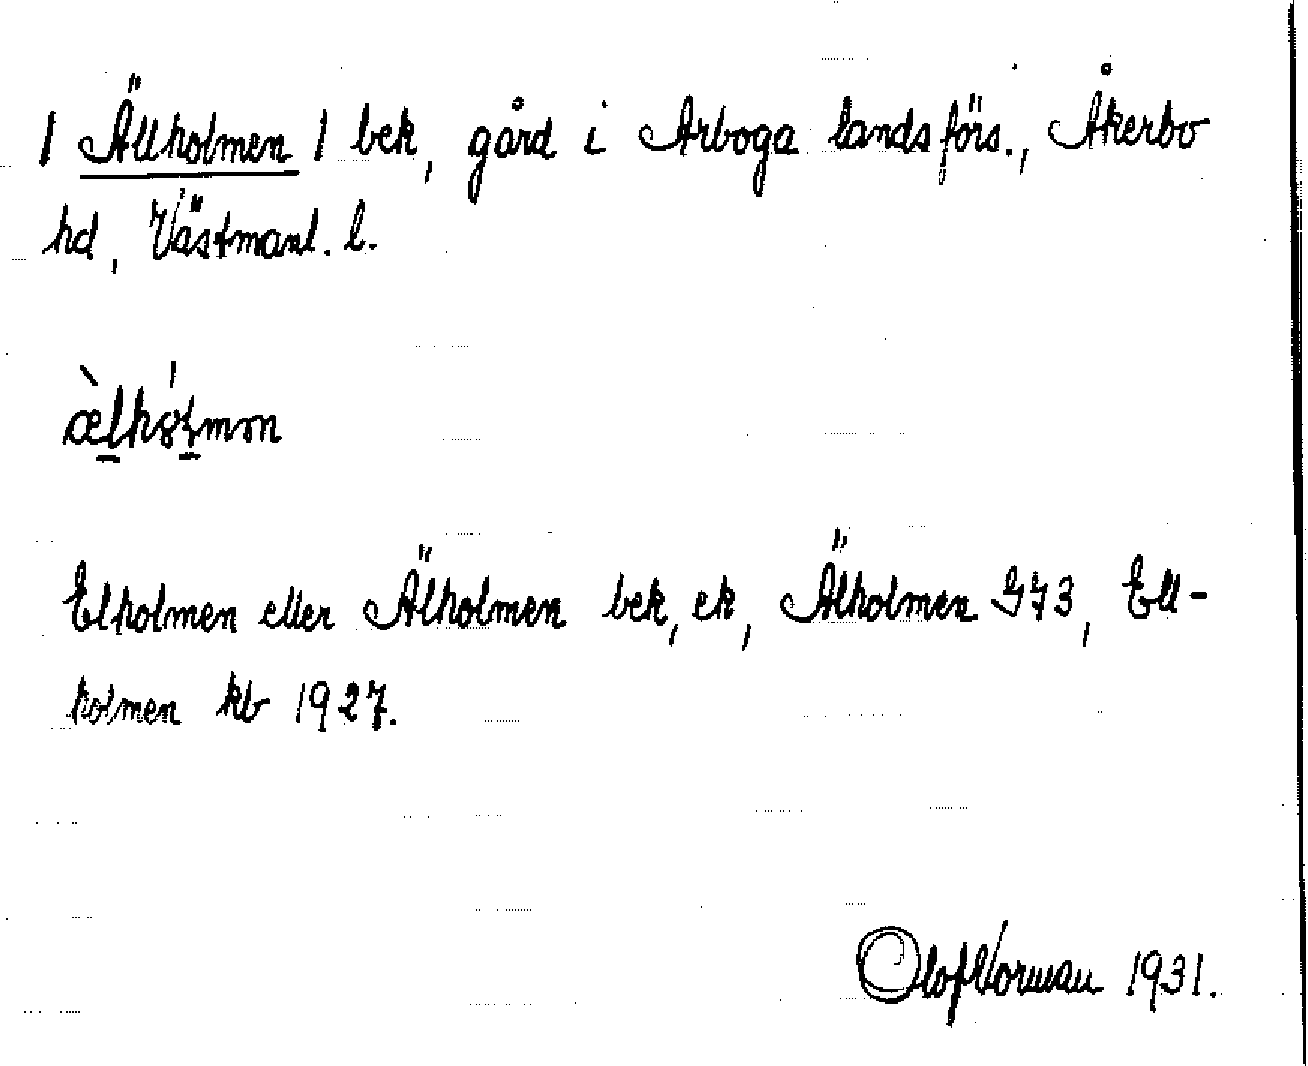 / Ällholmen / bek, gård i Arboga landsförs., Åkerbo
hd, Västmanl. l.
Elholmen eller Älholmen bek, ek, Älholmen G73, Ell-
holmen kb 1927.
Olof Norman 1931.